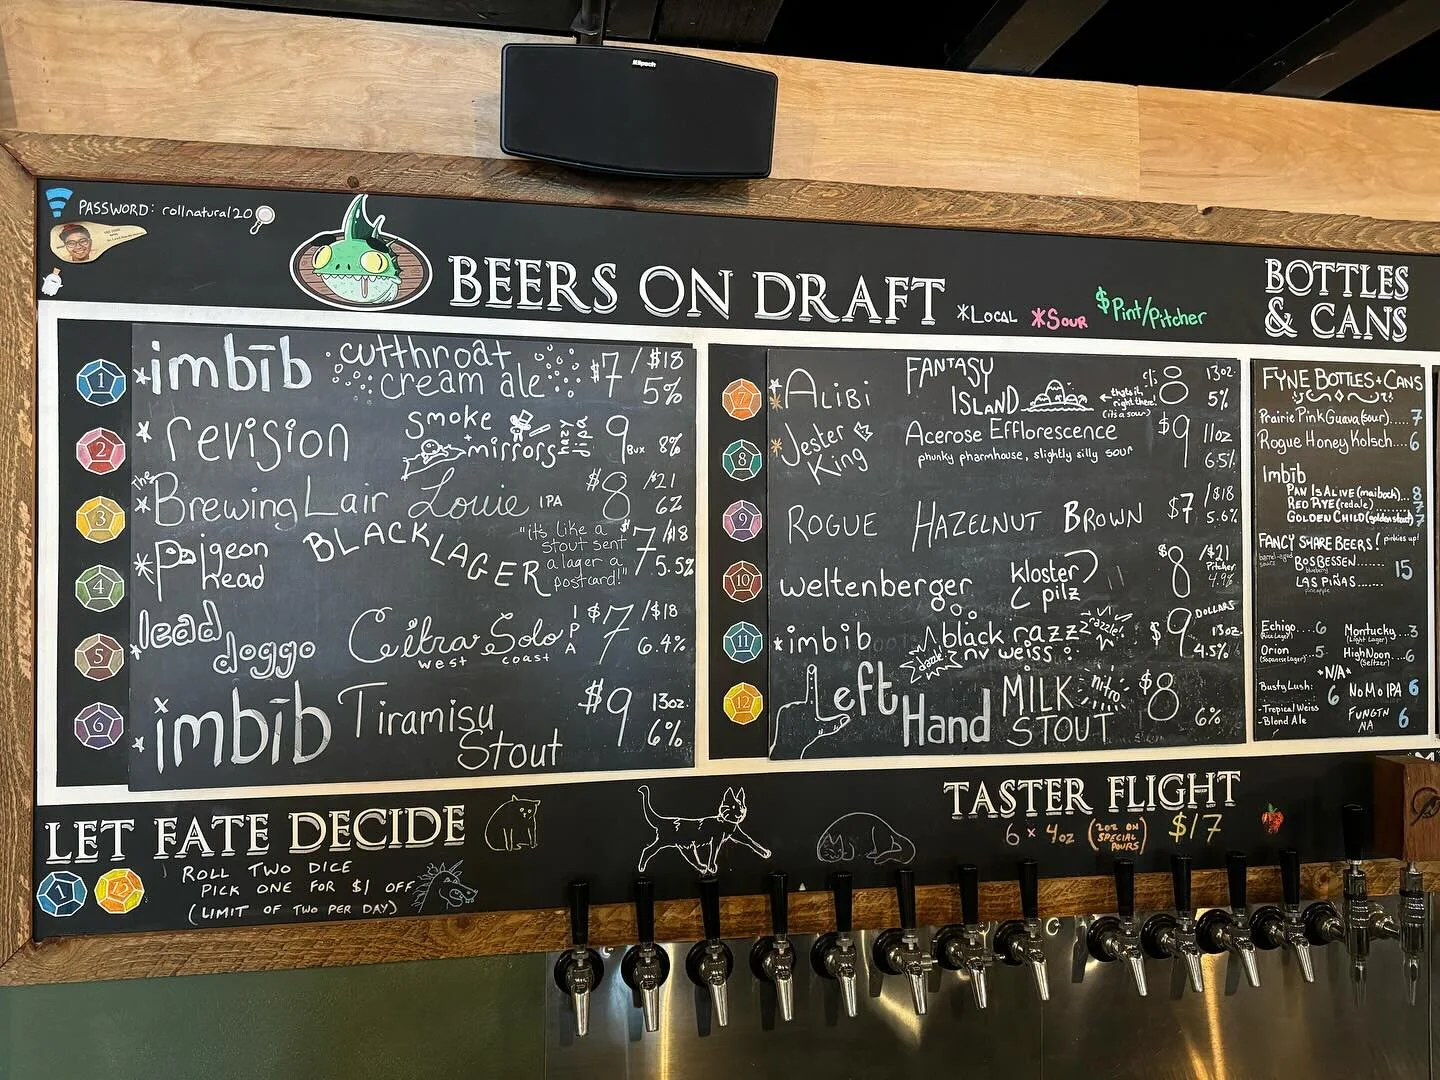 Klipsch
PASSWORD: rollnatural20
BEERS ON DRAFT
*LOCAL *SOUR $Pint/Pitcher
BOTTLES
& CANS
1
*imbīb cutthroat
cream ale $7/$18
5%
2
*revision smoke
+ mirrors hazy dipa 9 Bux 8%
3
The
*Brewing Lair Louie IPA $8 /21
6%
4
*Pigeon
head
BLACK LAGER
"it's like a
stout sent
a lager a
postcard!"
$7/18
5.5%
5
*lead
doggo
Citra Solo
west coast
IPA
$7/$18
6.4%
6
*imbīb Tiramisu
Stout
$9 13oz.
6%
7
**ALIBI FANTASY
ISLAND
←thats it,
right there!
(its a sour)
8 13oz.
5%
8
*Jester
King
Acerose Efflorescence
phunky pharmhouse, slightly silly sour
$9 11oz
6.5%
9
ROGUE HAZELNUT BROWN $7/$18
5.6%
10
weltenberger kloster
pilz
$8/$21
Pitcher
4.9%
11
*imbib black razz
nv weiss
dazzle!
razzle!
$9 DOLLARS
13oz.
4.5%
12
Left
Hand
MILK
STOUT
nitro
$8
6%
FYNE BOTTLES + CANS
Prairie Pink Guava (sour)..... 7
Rogue Honey Kolsch.... 6
Imbīb
PAN IS ALIVE (maibock)... 8
RED RYE (red ale)....... 7
GOLDEN CHILD (golden stout) 7
FANCY SHARE BEERS! pinkies up!
barrel-aged
sours
BOSBESSEN......
blueberry
LAS PIÑAS.......
pineapple
15
Echigo...6
(Rice Lager)
Montucky...3
(Light Lager)
Orion.....5
(Japanese Lager)
High Noon...6
(Seltzer)
*N/A*
Busty Lush: 6
-Tropical Weiss
-Blond Ale
No Mo IPA 6
FUNGTN
NA
6
LET FATE DECIDE
1 12
ROLL TWO DICE
PICK ONE FOR $1 OFF
(LIMIT OF TWO PER DAY)
TASTER FLIGHT
6 x 4oz (2oz ON
SPECIAL
POURS) $17